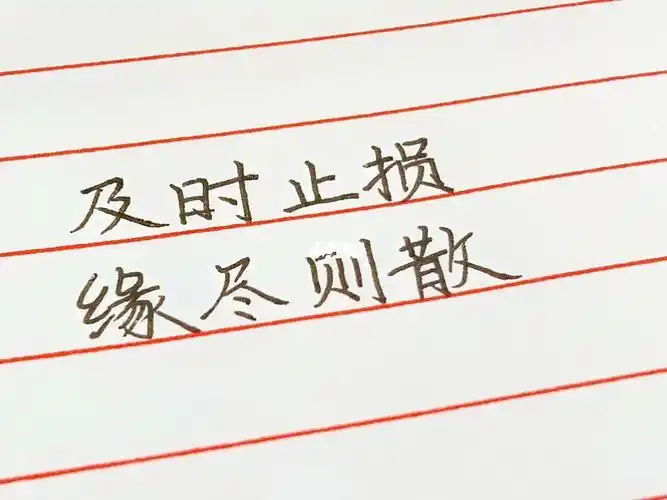 及时止损
缘尽则散